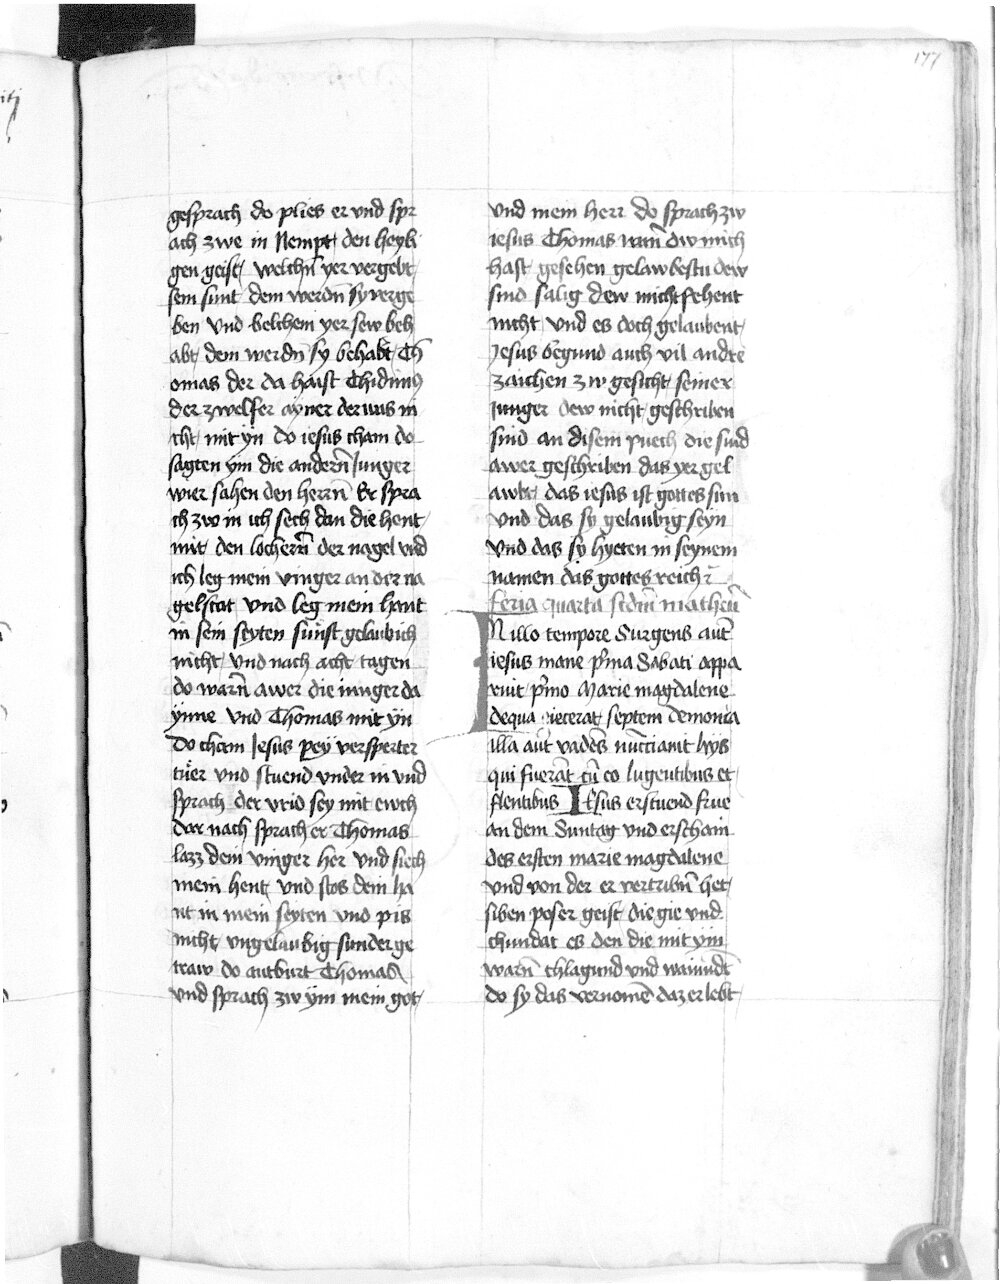 177
gesprach do plies er vnd spr
ach zwe in Nempt den heyli
gen geist welchn̄ yer vergebt
sein sunt dem werdn̄ sy verge
ben Vnd belchem yer sew beh
abt dem werdn̄ sy behabt Th
omas der da haist Chidimus
der zwelfer ayner der was ni
cht mit yn do iesus cham do
sagten ym die andern̄ Junger
wier sahen den herrn̄ Er spra
ch zw in ich sech dan die hent
mit den lochern̄ der nagel vnd
ich leg mein vinger an der na
gelstat vnd leg mein hant
in sein seyten sunst gelaubich
nicht vnd nach acht tagen
do warn̄ awer die iunger da
ynne vnd Thomas mit yn
Do cham Jesus pey versperter
tuer vnd stuend vnder in vnd
sprach der vrid sey mit ewch
dar nach sprach er Thomas
lazz dein vinger her vnd siech
mein hent vnd stos dein ha
nt in mein seyten vnd pis
nicht vngelaubig sunder ge
traw do antburt Thomas
vnd sprach zw ym mein got
vnd mein herr do sprach zw
iesus Thomas wan̄ dw mich
hast gesehen gelawbestu dew
sind salig dew mich sehent
nicht vnd es doch gelaubent
Jesus begund auch vil andre
zaichen zw gesicht seiner
Junger dew nicht geschriben
sind an disem puech die sind
awer geschriben das yer gel
awbt das iesus ist gottes sun
vnd das sy gelaubig seyn
vnd das sy hyeten in seynem
namen das gottes reich
feria quarta scdm̄ matheū
IN illo tempore Surgens aut̄
iesus mane pͥma Sabati appa
ruit pͥmo Marie magdalene
de qua iecerat septem demonia
illa aut̄ vadēs nūcciauit hys
qui fuerāt cū eo lugentibus et
flentibus Iesus erstuend frue
an dem Suntag vnd erschain
des ersten marie magdalene
vnd von der er vertribn̄ het
siben poser geist die gie vnd
chundat es den die mit ym
warn̄ chlagund vnd wainūdt
do sy das vernomē daz er lebt